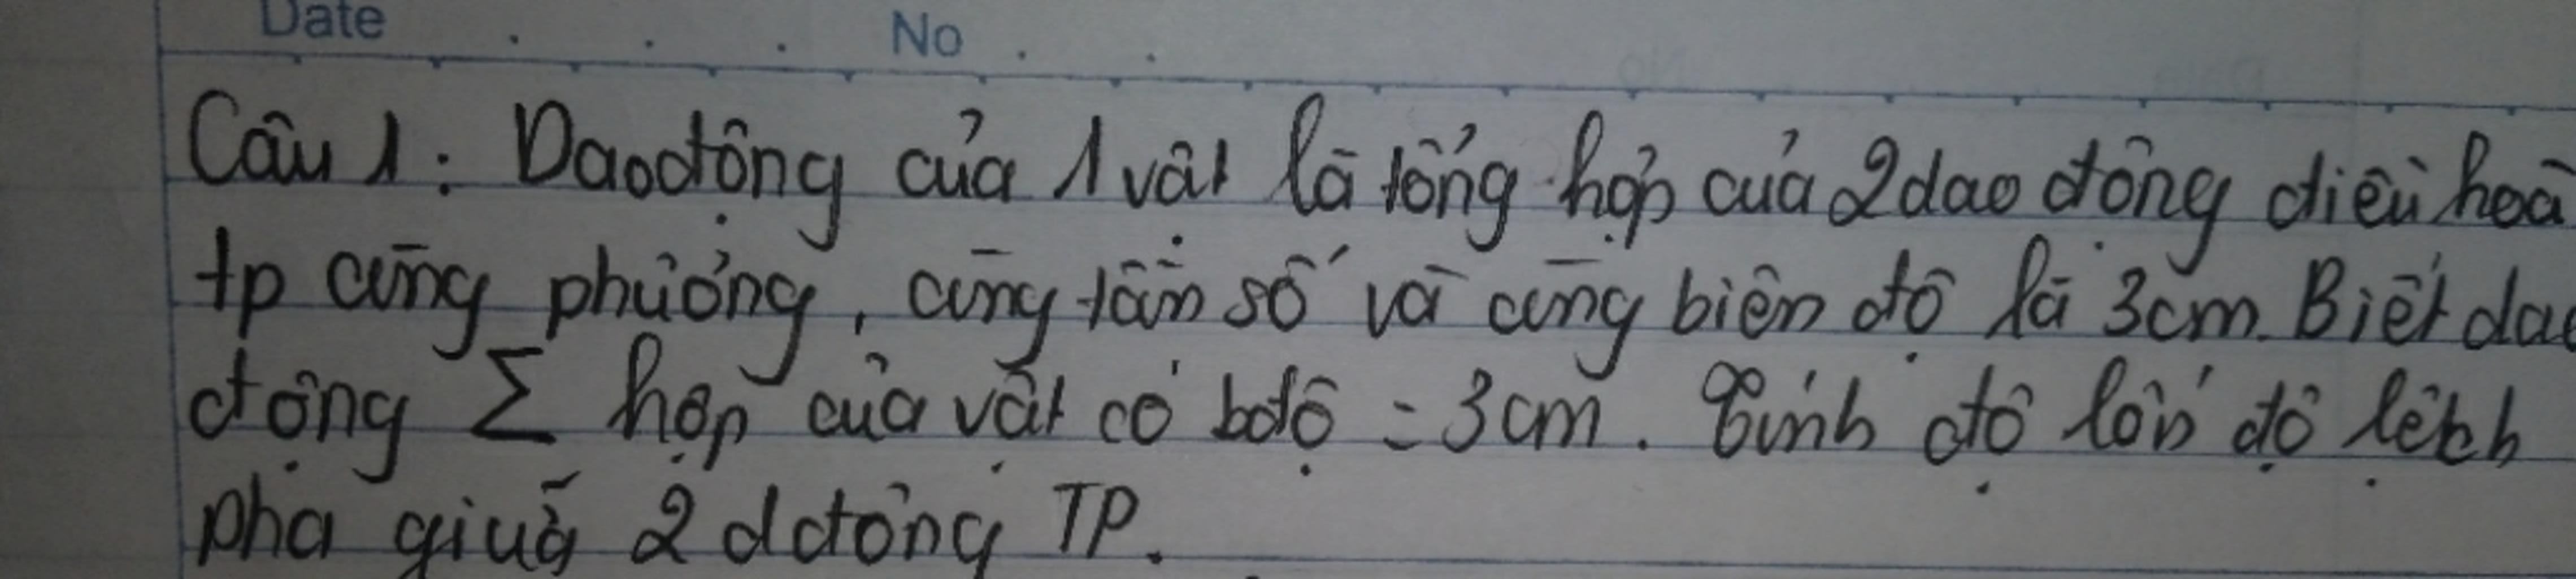 Date No
Câu 1: Dao động của 1 vật là tổng hợp của 2 dao động điều hoà
tp cùng phương, cùng tần số và cùng biên độ là 3cm. Biết dao
động Σ hợp của vật có bđộ = 3cm. Tính độ lớn độ lệch
pha giữa 2 dđộng TP.